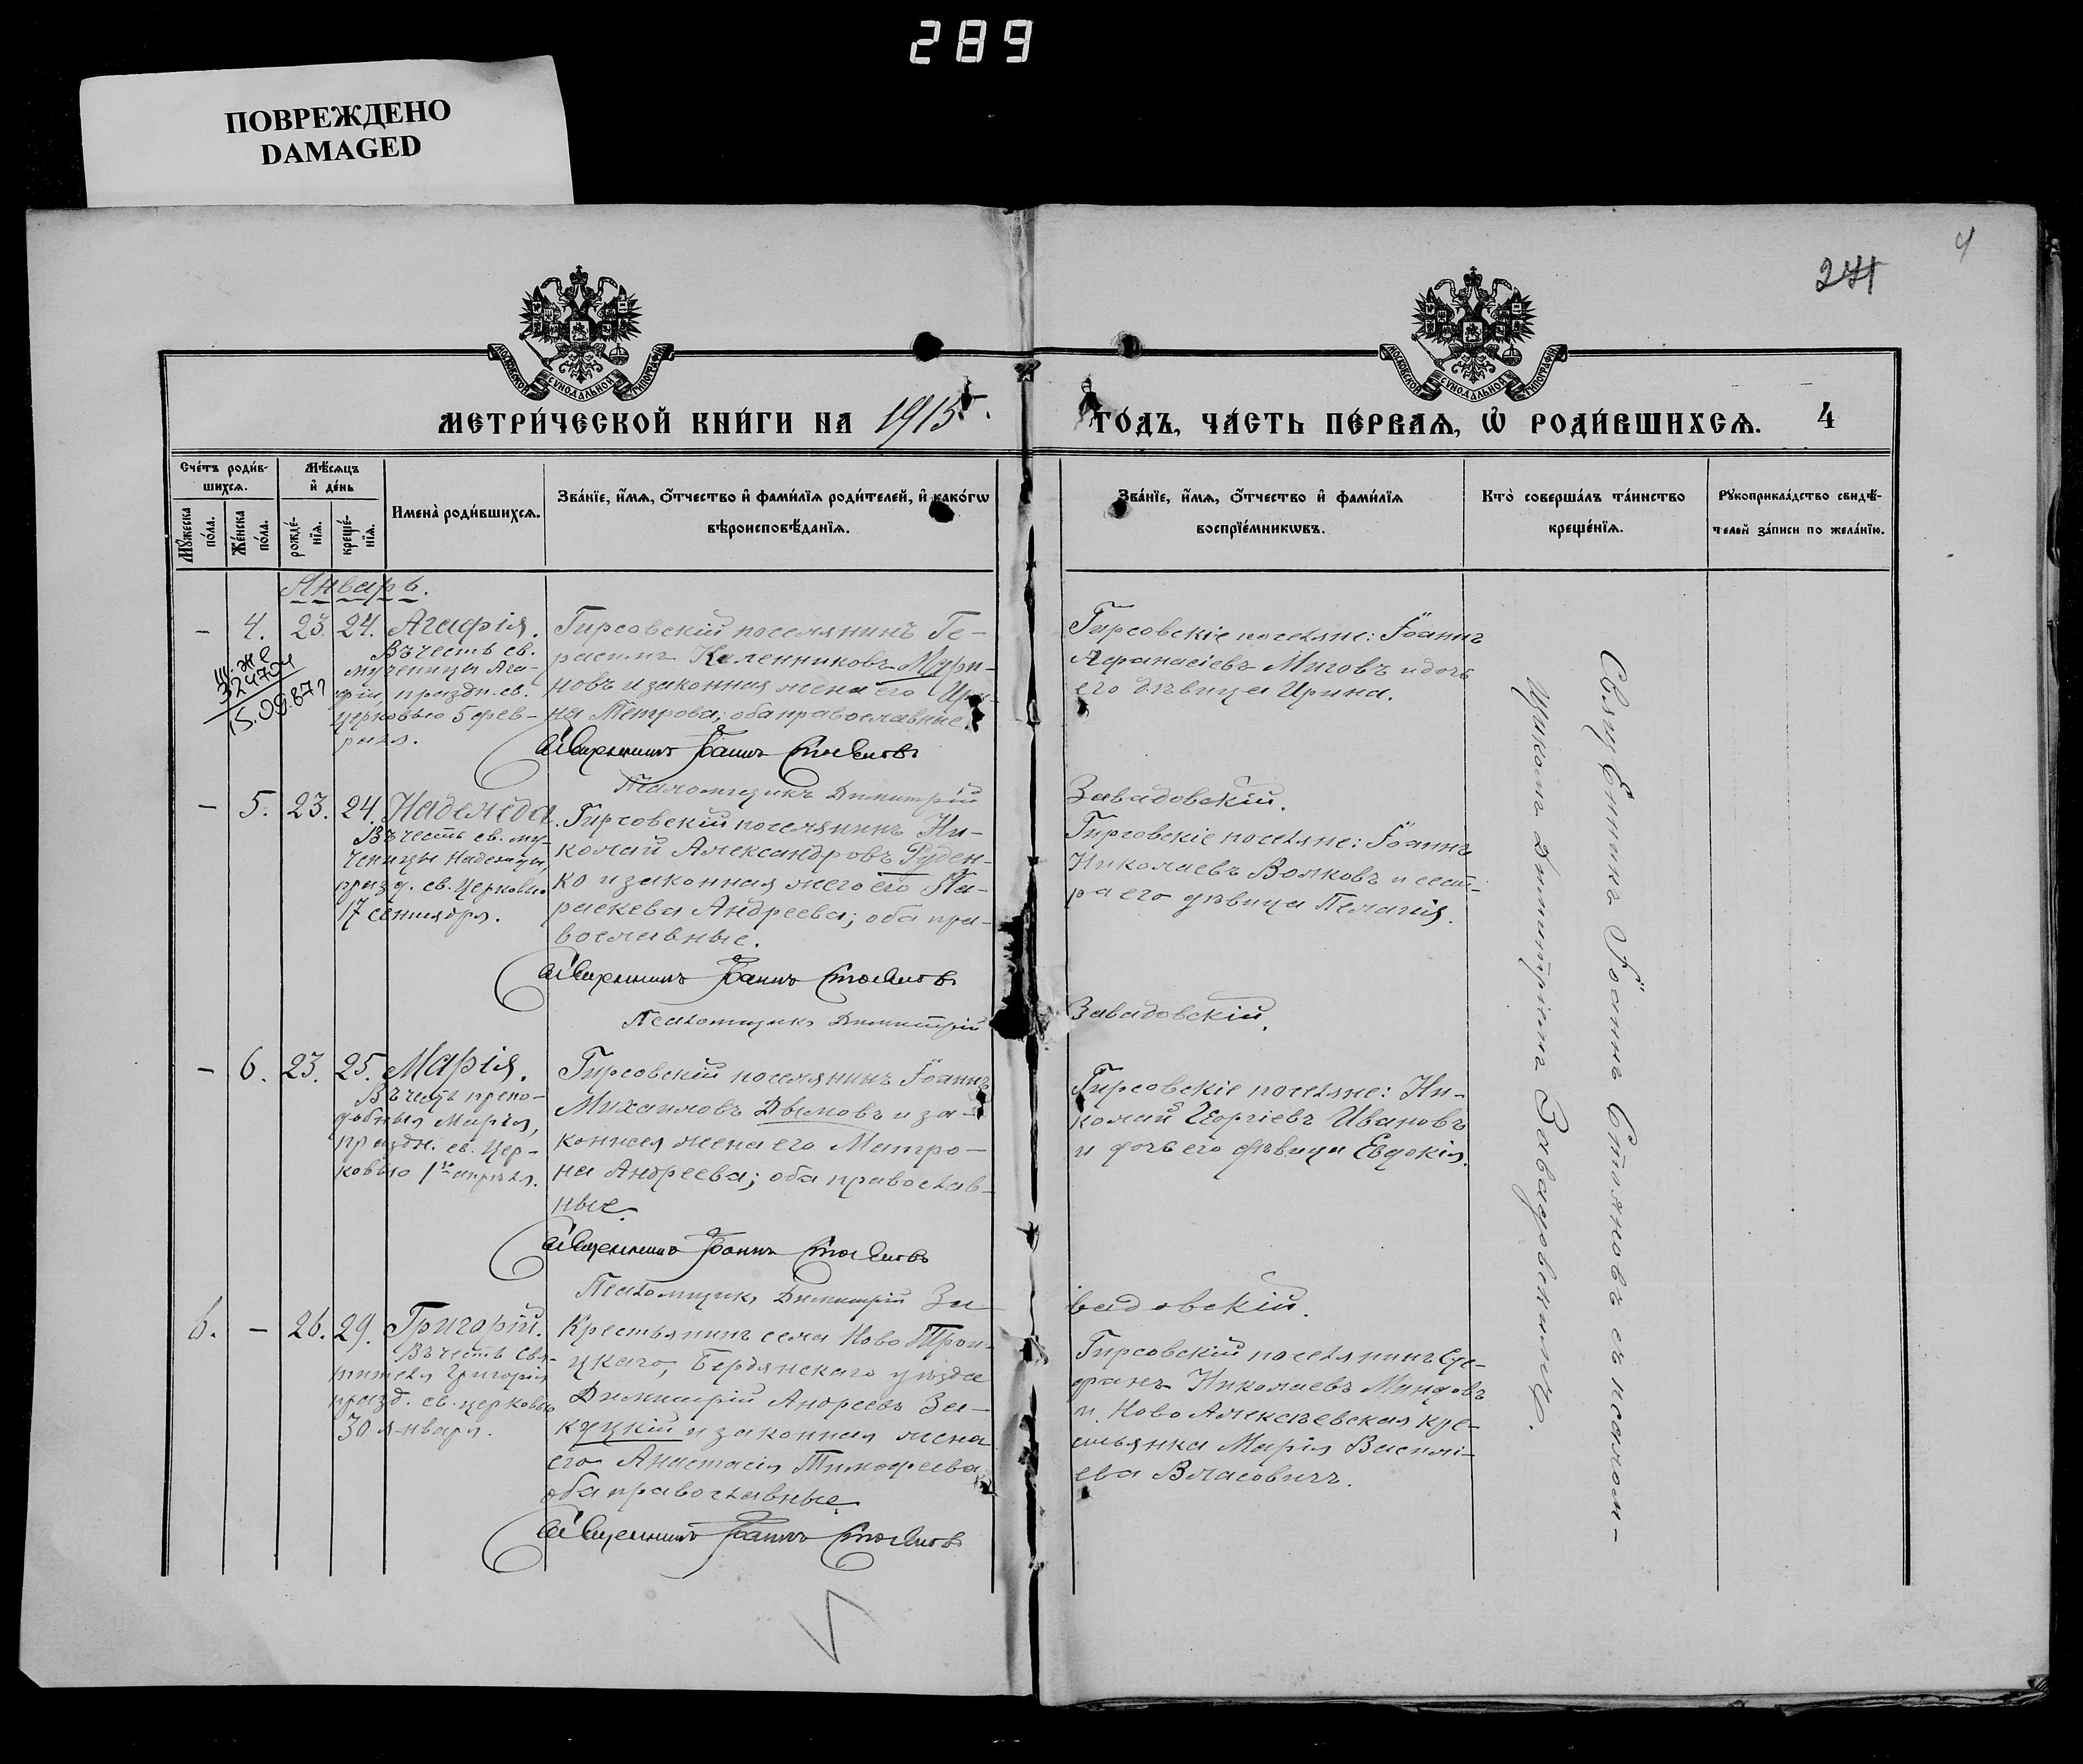 289
ПОВРЕЖДЕНО
DAMAGED
4
271
МОСКОВСКОЙ СѴНОДАЛЬНОЙ ТИПОГРАФІИ
МОСКОВСКОЙ СѴНОДАЛЬНОЙ ТИПОГРАФІИ
МЕТРИ́ЧЕСКОЙ КНИ́ГИ НА 1915
ГО́ДЪ, ЧА́СТЬ ПЕ́РВАѦ, Ѽ РОДИ́ВШИХСѦ. 4
Сче́тъ роди́в-
шихсѧ.
Мѣ́сѧцъ
и҆ де́нь
Мꙋ́жеска
по́ла.
Же́нска
по́ла.
рожде́-
нїѧ.
креще́-
нїѧ.
Имена̀ роди́вшихсѧ.
Зва́нїе, и҆́мѧ, ѻ҆́тчество и҆ фами́лїѧ роди́телей, и҆ како́гѡ
вѣроисповѣ́данїѧ.
Зва́нїе, и҆́мѧ, ѻ҆́тчество и҆ фами́лїѧ
воспрїе́мникѡвъ.
Кто̀ соверша́лъ та́инство
креще́нїѧ.
Рꙋкоприкла́дство свидѣ́-
телей за́писи по жела́нїю.
Январь.
- 4. 23. 24. Агафія.
Въ честь св.
мученицы Ага-
фіи, праздн. св.
церковью 5 фев-
раля.
Гирсовскій поселянинъ Ге-
расимъ Каленниковъ Мари-
новъ и законная жена его Ири-
на Петрова; оба православные.
Священникъ Іоаннъ Стояновъ
Псаломщикъ Димитрій
Гирсовскіе поселяне: Іоаннъ
Афанасіевъ Миговъ и дочь
его дѣвица Ирина.
Завадовскій.
- 5. 23. 24. Надежда.
Въ честь св. му-
ченицы Надежды
празд. св. Церковью
17 сентября.
Гирсовскій поселянинъ Ни-
колай Александровъ Руден-
ко и законная жего его Па-
раскева Андреева; оба пра-
вославные.
Священникъ Іоаннъ Стояновъ
Псаломщикъ Димитрій
Гирсовскіе поселяне: Іоаннъ
Николаевъ Волковъ и сест-
ра его дѣвица Пелагія.
Завадовскій.
- 6. 23. 25. Марія.
Въ честь препо-
добныя Маріи,
праздн. св. Цер-
ковью 1го апрѣля.
Гирсовскій поселянинъ Іоаннъ
Михаиловъ Дымовъ и за-
конная жена его Матро-
на Андреева; оба православ-
ные.
Священникъ Іоаннъ Стояновъ
Псаломщикъ Димитрій За-
Гирсовскіе поселяне: Ни-
колай Георгіевъ Ивановъ
и дочь его дѣвица Евдокія.
вадовскій.
6. - 26. 29. Григорій.
Въ честь Свя-
тителя Григорія
празд. св. церковью
30 января.
Крестьянинъ села Ново Трои-
цкаго, Бердянскаго уѣзда
Димитрій Андреевъ За-
куцкій и законная жена
его Анастасія Тимофеева
оба православные.
Священникъ Іоаннъ Стояновъ
Гирсовскій поселянинъ
Николаевъ
и Ново Алексѣевская кре-
стьянка Марія Василі-
ева Власовичъ.
Священникъ Іоаннъ Стояновъ съ псалом-
щикомъ Димитріемъ Завадовскимъ.